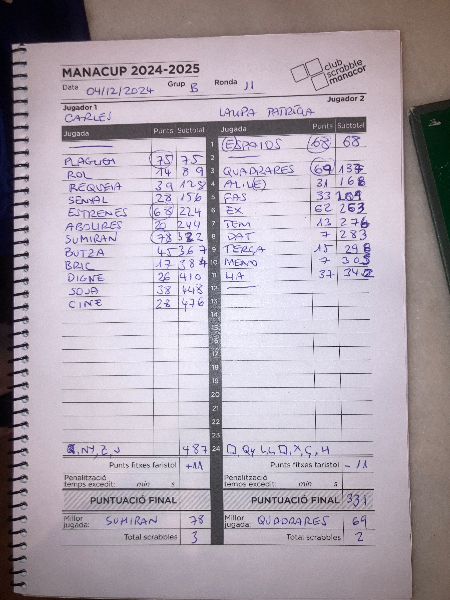 MANACUP 2024-2025
club scrabble manacor
Data 04/12/2024 Grup B Ronda 11
Jugador 1 Jugador 2
CARLES
Jugada Punts Subtotal Jugada Punts Subtotal
1 ESPAIDS 68 68
PLAGUEU 75 75 2
ROL 14 89 3 QUADRARES 69 137
REQUEIA 39 128 4 ALI(E) 31 168
SENYAL 28 156 5 FAS 33
ESTRENES 68 224 6 EX 62 263
ABOLIRES 20 244 7 TEM 13 276
SUMIRAN 78 322 8 DAT 7 283
BUTZA 45 367 9 TERÇA 15 298
BRIC 17 384 10 MENO 7 305
DIGNE 26 410 11 HA 37 342
SOJA 38 448 12
CINE 28 476 13
14
15
16
17
18
19
20
21
22
23
487 24
Punts fitxes faristol +11 Punts fitxes faristol -11
Penalització temps excedit: min s Penalització temps excedit: min s
PUNTUACIÓ FINAL PUNTUACIÓ FINAL 331
Millor jugada: SUMIRAN 78 Millor jugada: QUADRARES 69
Total scrabbles 3 Total scrabbles 2